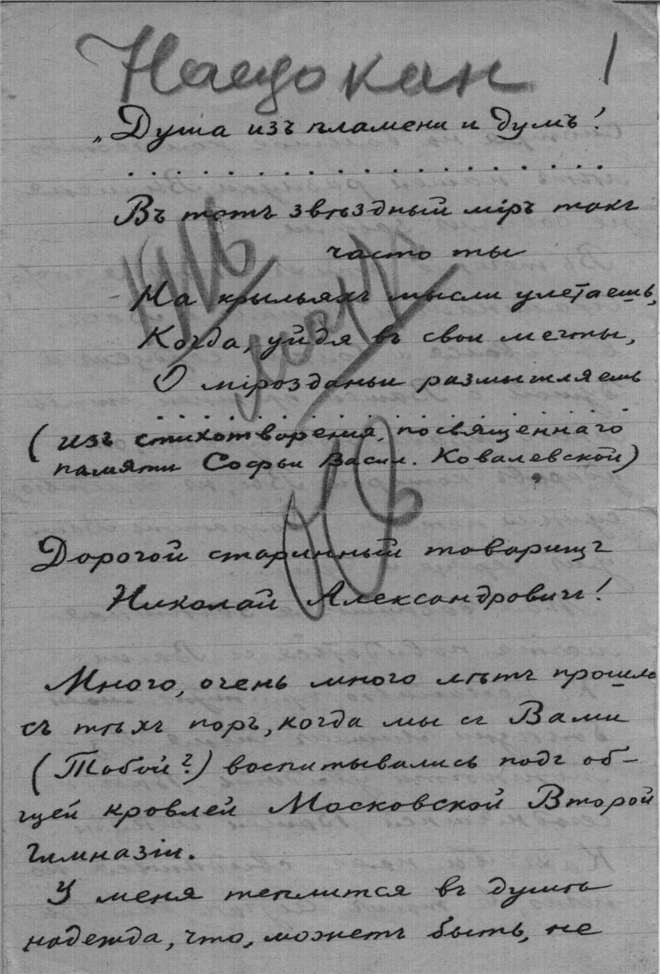 1
„Душа изъ пламени и думъ!
. . . . . . . . . . . . . . . . . .
Въ тотъ звѣздный міръ такъ
часто ты
На крыльяхъ мысли улетаешь,
Когда, уйдя въ свои мечты,
О мірозданьи размышляешь
. . . . . . . . . . . . . . . . . .
(изъ стихотворенія, посвященнаго
памяти Софьи Васил. Ковалевской)
Дорогой старинный товарищъ
Николай Александровичъ!
Много, очень много лѣтъ прошло
съ тѣхъ поръ, когда мы съ Вами
(Тобой?) воспитывались подъ об-
щей кровлей Московской Второй
гимназіи.
У меня теплится въ душѣ
надежда, что, можетъ быть, не